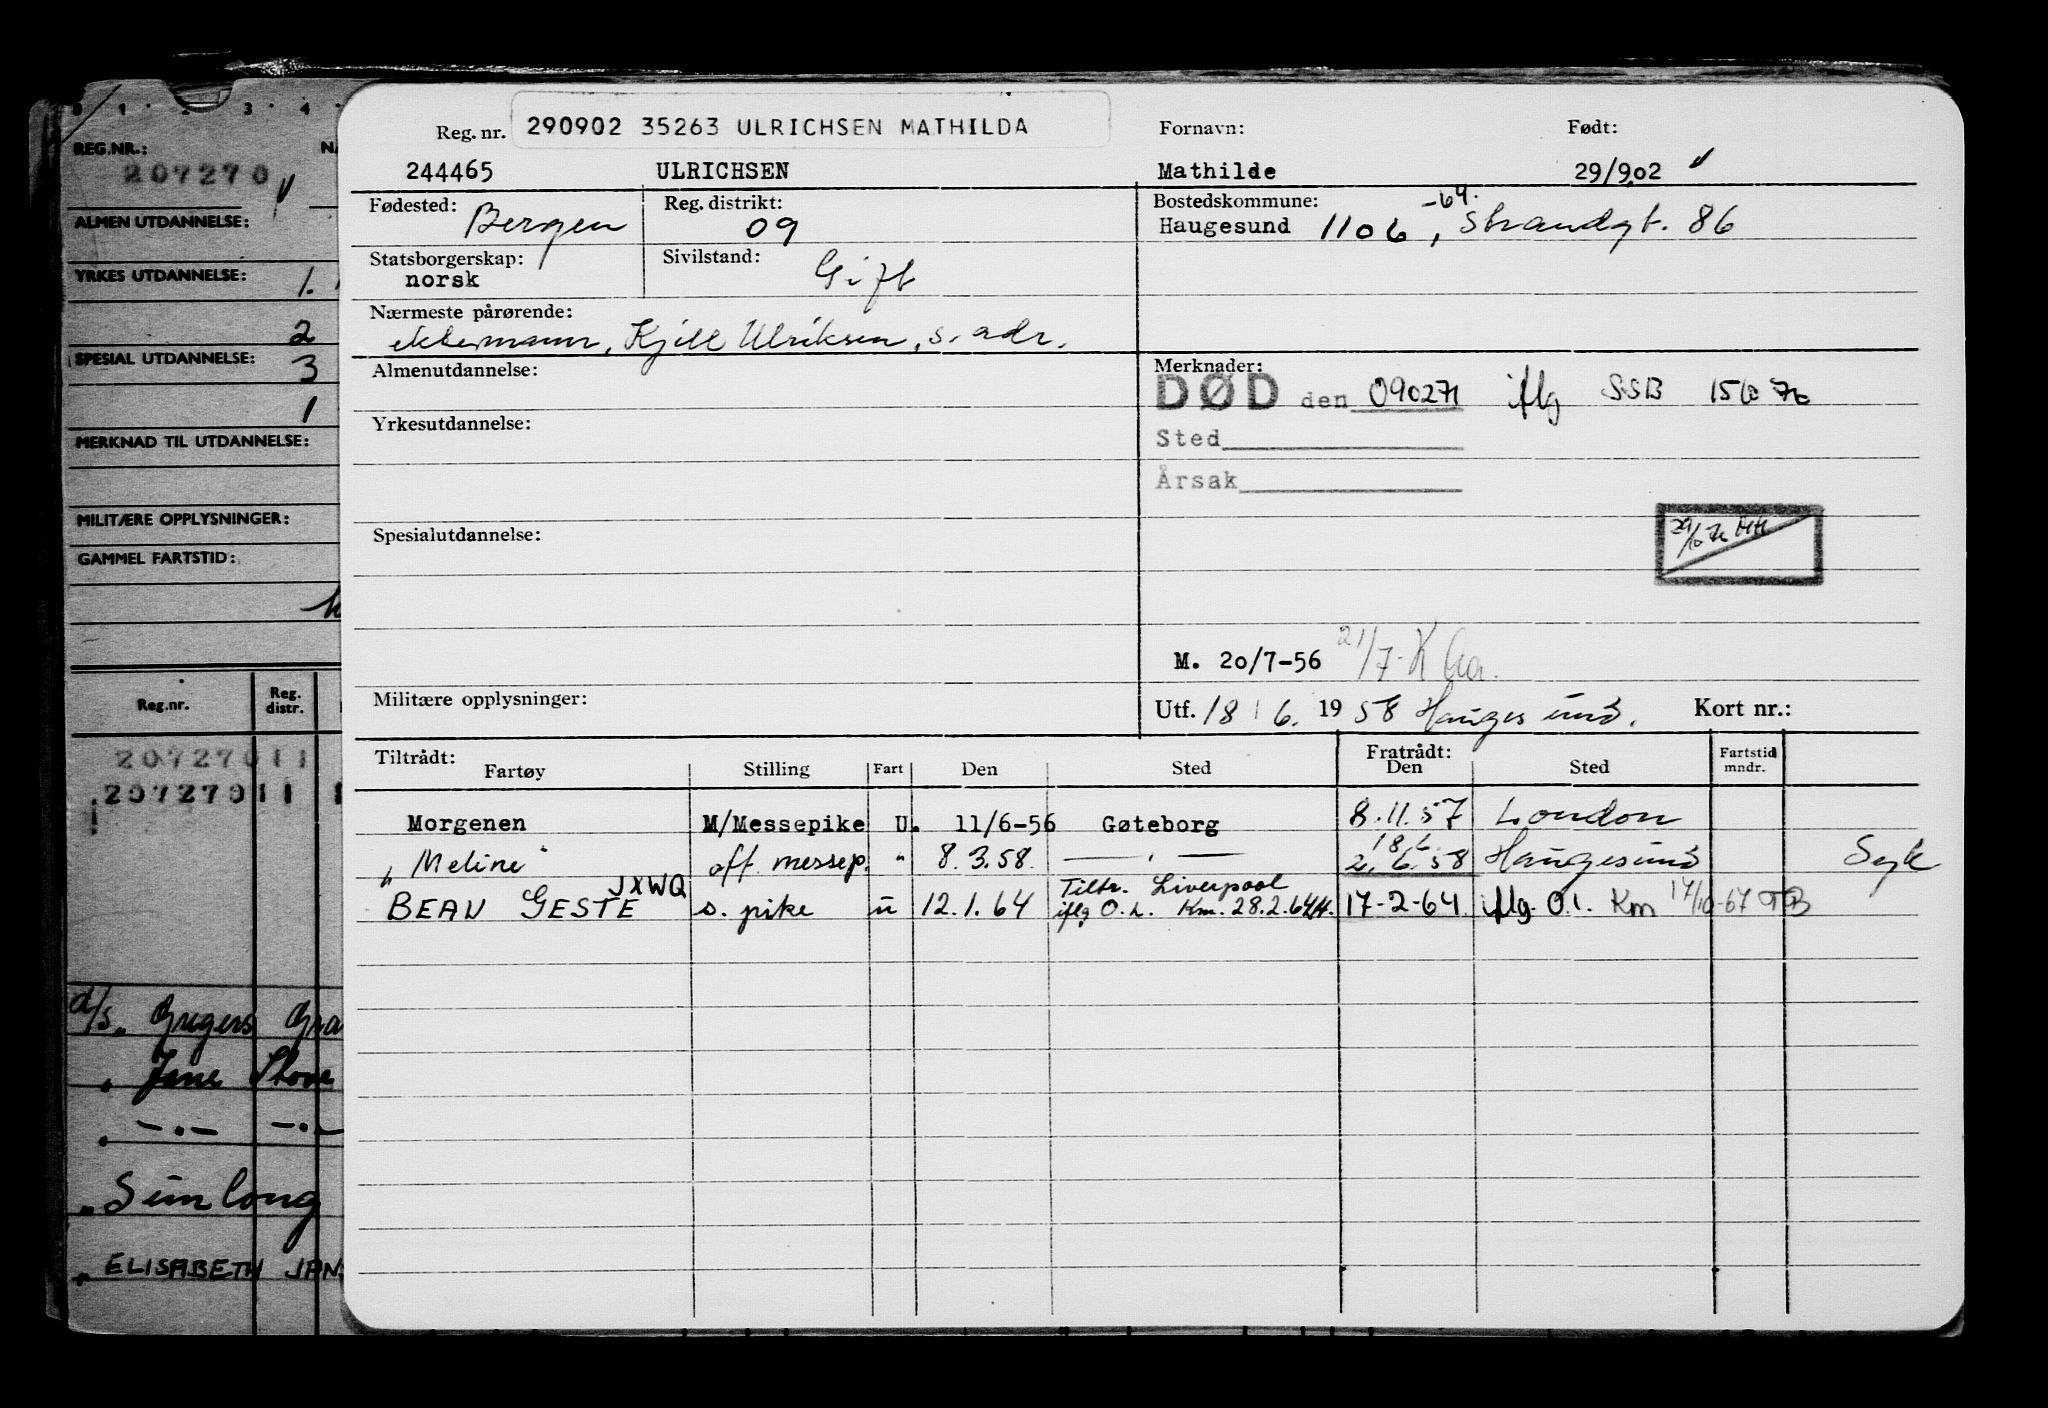 0 1 2 3 4
REG.NR.:
207270
ALMEN UTDANNELSE:
YRKES UTDANNELSE:
1.
2
SPESIAL UTDANNELSE:
3
1
MERKNAD TIL UTDANNELSE:
MILITÆRE OPPLYSNINGER:
GAMMEL FARTSTID:
Reg.nr. Reg. distr.
20727011
20727011
d/s. Gregers
" Jane
" —.— —.—
" Simlong
" ELISABETH
Reg. nr. 290902 35263 ULRICHSEN MATHILDA Fornavn: Født:
244465 ULRICHSEN Mathilde 29/9.02
Fødested: Bergen Reg. distrikt: 09 Bostedskommune: -64.
Haugesund 1106, Strandgt. 86
Statsborgerskap: norsk Sivilstand: Gift
Nærmeste pårørende:
ektemann, Kjell Ulriksen, s. adr.
Almenutdannelse: Merknader:
DØD den 090271 iflg SSB
Yrkesutdannelse: Sted
Årsak
Spesialutdannelse:
M. 20/7-56 21/7-
Militære opplysninger: Utf. 18/6. 1958 Haugesund. Kort nr.:
Tiltrådt: Fratrådt:
Fartøy Stilling Fart Den Sted Den Sted Fartstid mndr.
Morgenen M/Messepike U. 11/6-56 Gøteborg 8.11.57 London
18.6.
" Meline" off. messep. " 8.3.58. — " — 2.6.58 Haugesund Syk
JXWQ Tiltr. Liverpool
BEAU GESTE s. pike u 12.1.64 iflg O.L. Km. 28.2.64 17-2-64 iflg. O.l. Km 17/10-67